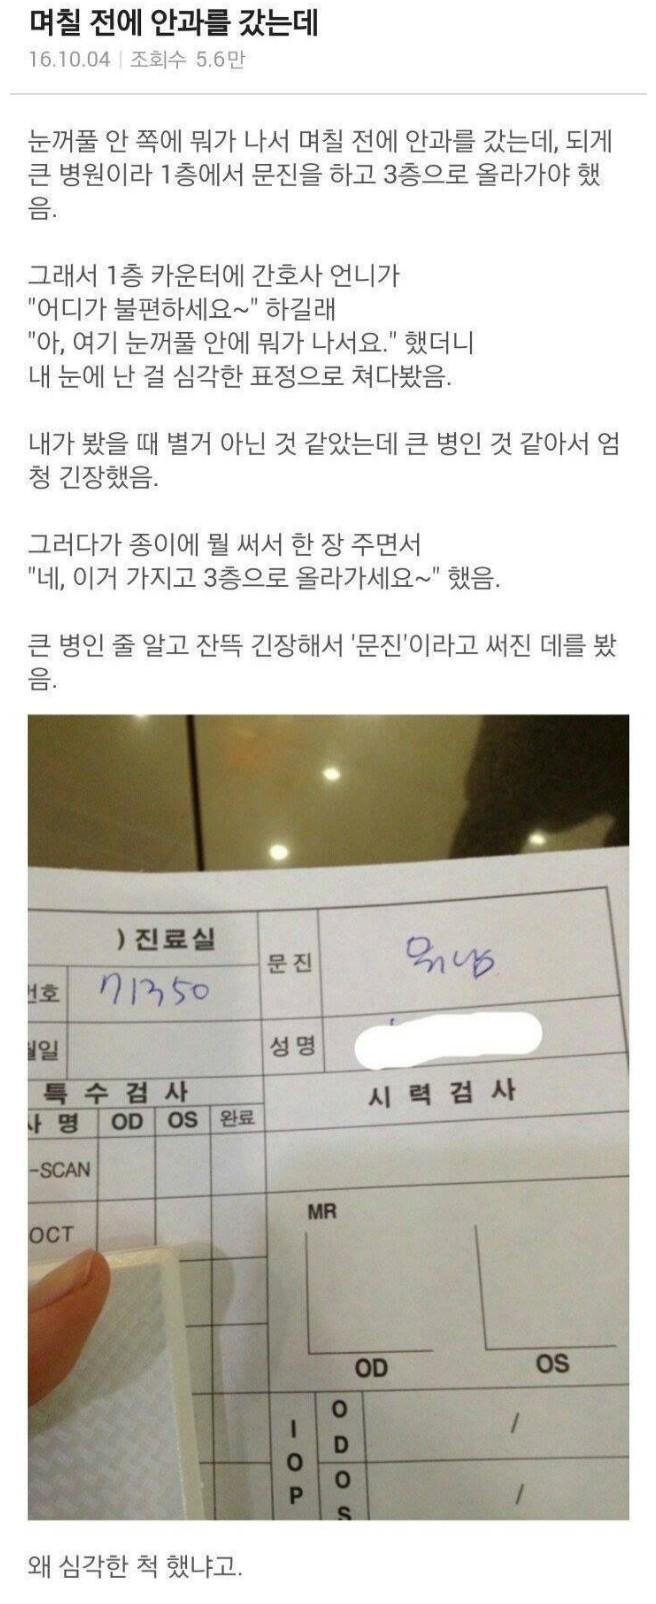 며칠 전에 안과를 갔는데
16.10.04 | 조회수 5.6만
눈꺼풀 안 쪽에 뭐가 나서 며칠 전에 안과를 갔는데, 되게
큰 병원이라 1층에서 문진을 하고 3층으로 올라가야 했
음.
그래서 1층 카운터에 간호사 언니가
"어디가 불편하세요~" 하길래
"아, 여기 눈꺼풀 안에 뭐가 나서요." 했더니
내 눈에 난 걸 심각한 표정으로 쳐다봤음.
내가 봤을 때 별거 아닌 것 같았는데 큰 병인 것 같아서 엄
청 긴장했음.
그러다가 종이에 뭘 써서 한 장 주면서
"네, 이거 가지고 3층으로 올라가세요~" 했음.
큰 병인 줄 알고 잔뜩 긴장해서 '문진'이라고 써진 데를 봤
음.
) 진료실
문진
뭐남
번호
71350
월일
성명
특수검사
시력검사
사명 OD OS 완료
-SCAN
OCT
MR
OD
OS
IOP
OD
/
OS
/
왜 심각한 척 했냐고.